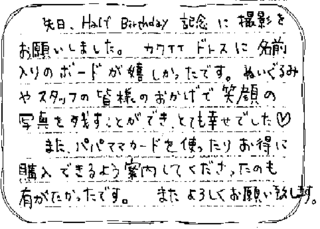 先日、Half Birthday 記念に撮影を
お願いしました。カワイイドレスに名前
入りのボードが嬉しかったです。ぬいぐるみ
やスタッフの皆様のおかげで笑顔の
写真を残すことができ、とても幸せでした♡
また、パパママカードを使ったりお得に
購入できるよう案内してくださったのも
有がたかったです。 またよろしくお願い致します。